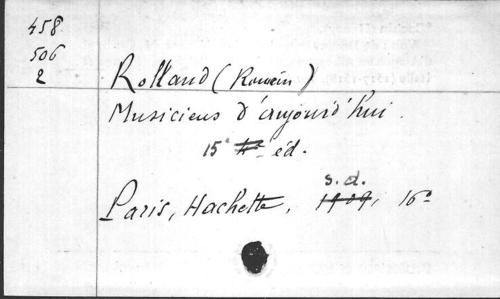 458
506
2
Rolland (Romain)
Musiciens d'aujourd'hui.
15e 4e éd.
s.d.
Paris, Hachette, 1909, 16°